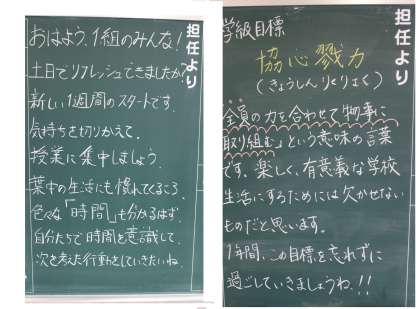 担任より
おはよう、1組のみんな!
土日でリフレッシュできましたか?
新しい1週間のスタートです。
気持ちを切りかえて、
授業に集中しましょう。
葉中の生活にも慣れてくるころ、
色々な「時間」も分かるはず。
自分たちで時間を意識して、
次を考えた行動をしていきたいね。
担任より
学級目標
協心戮力
(きょうしんりくりょく)
「全員の力を合わせて物事に
取り組む」という意味の言葉
です。楽しく、有意義な学校
生活にするためには欠かせない
ものだと思います。
1年間、この目標を忘れずに
過ごしていきましょうね!!